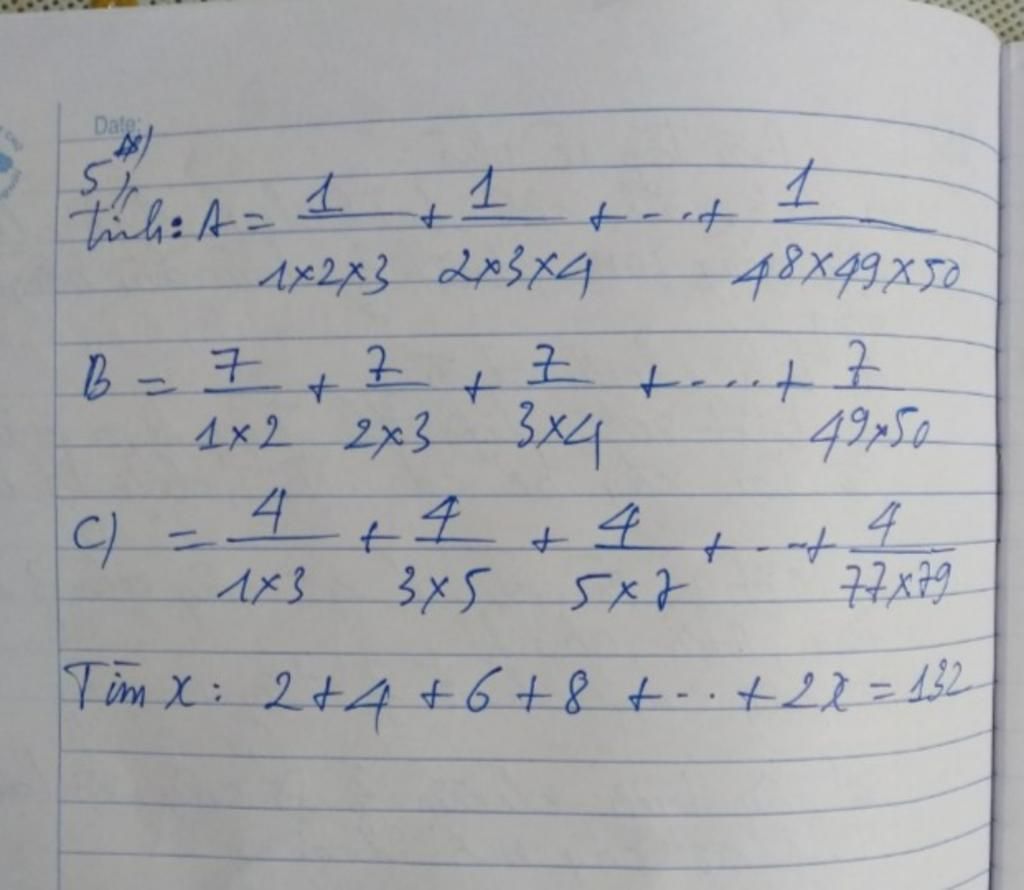 Date:
5
Tính: A = 1/(1×2×3) + 1/(2×3×4) + --·+ 1/(48×49×50)
B = 7/(1×2) + 7/(2×3) + 7/(3×4) + -...+ 7/(49×50)
C) = 4/(1×3) + 4/(3×5) + 4/(5×7) + --·+ 4/(77×79)
Tìm x: 2+4+6+8 +-..+2x=132